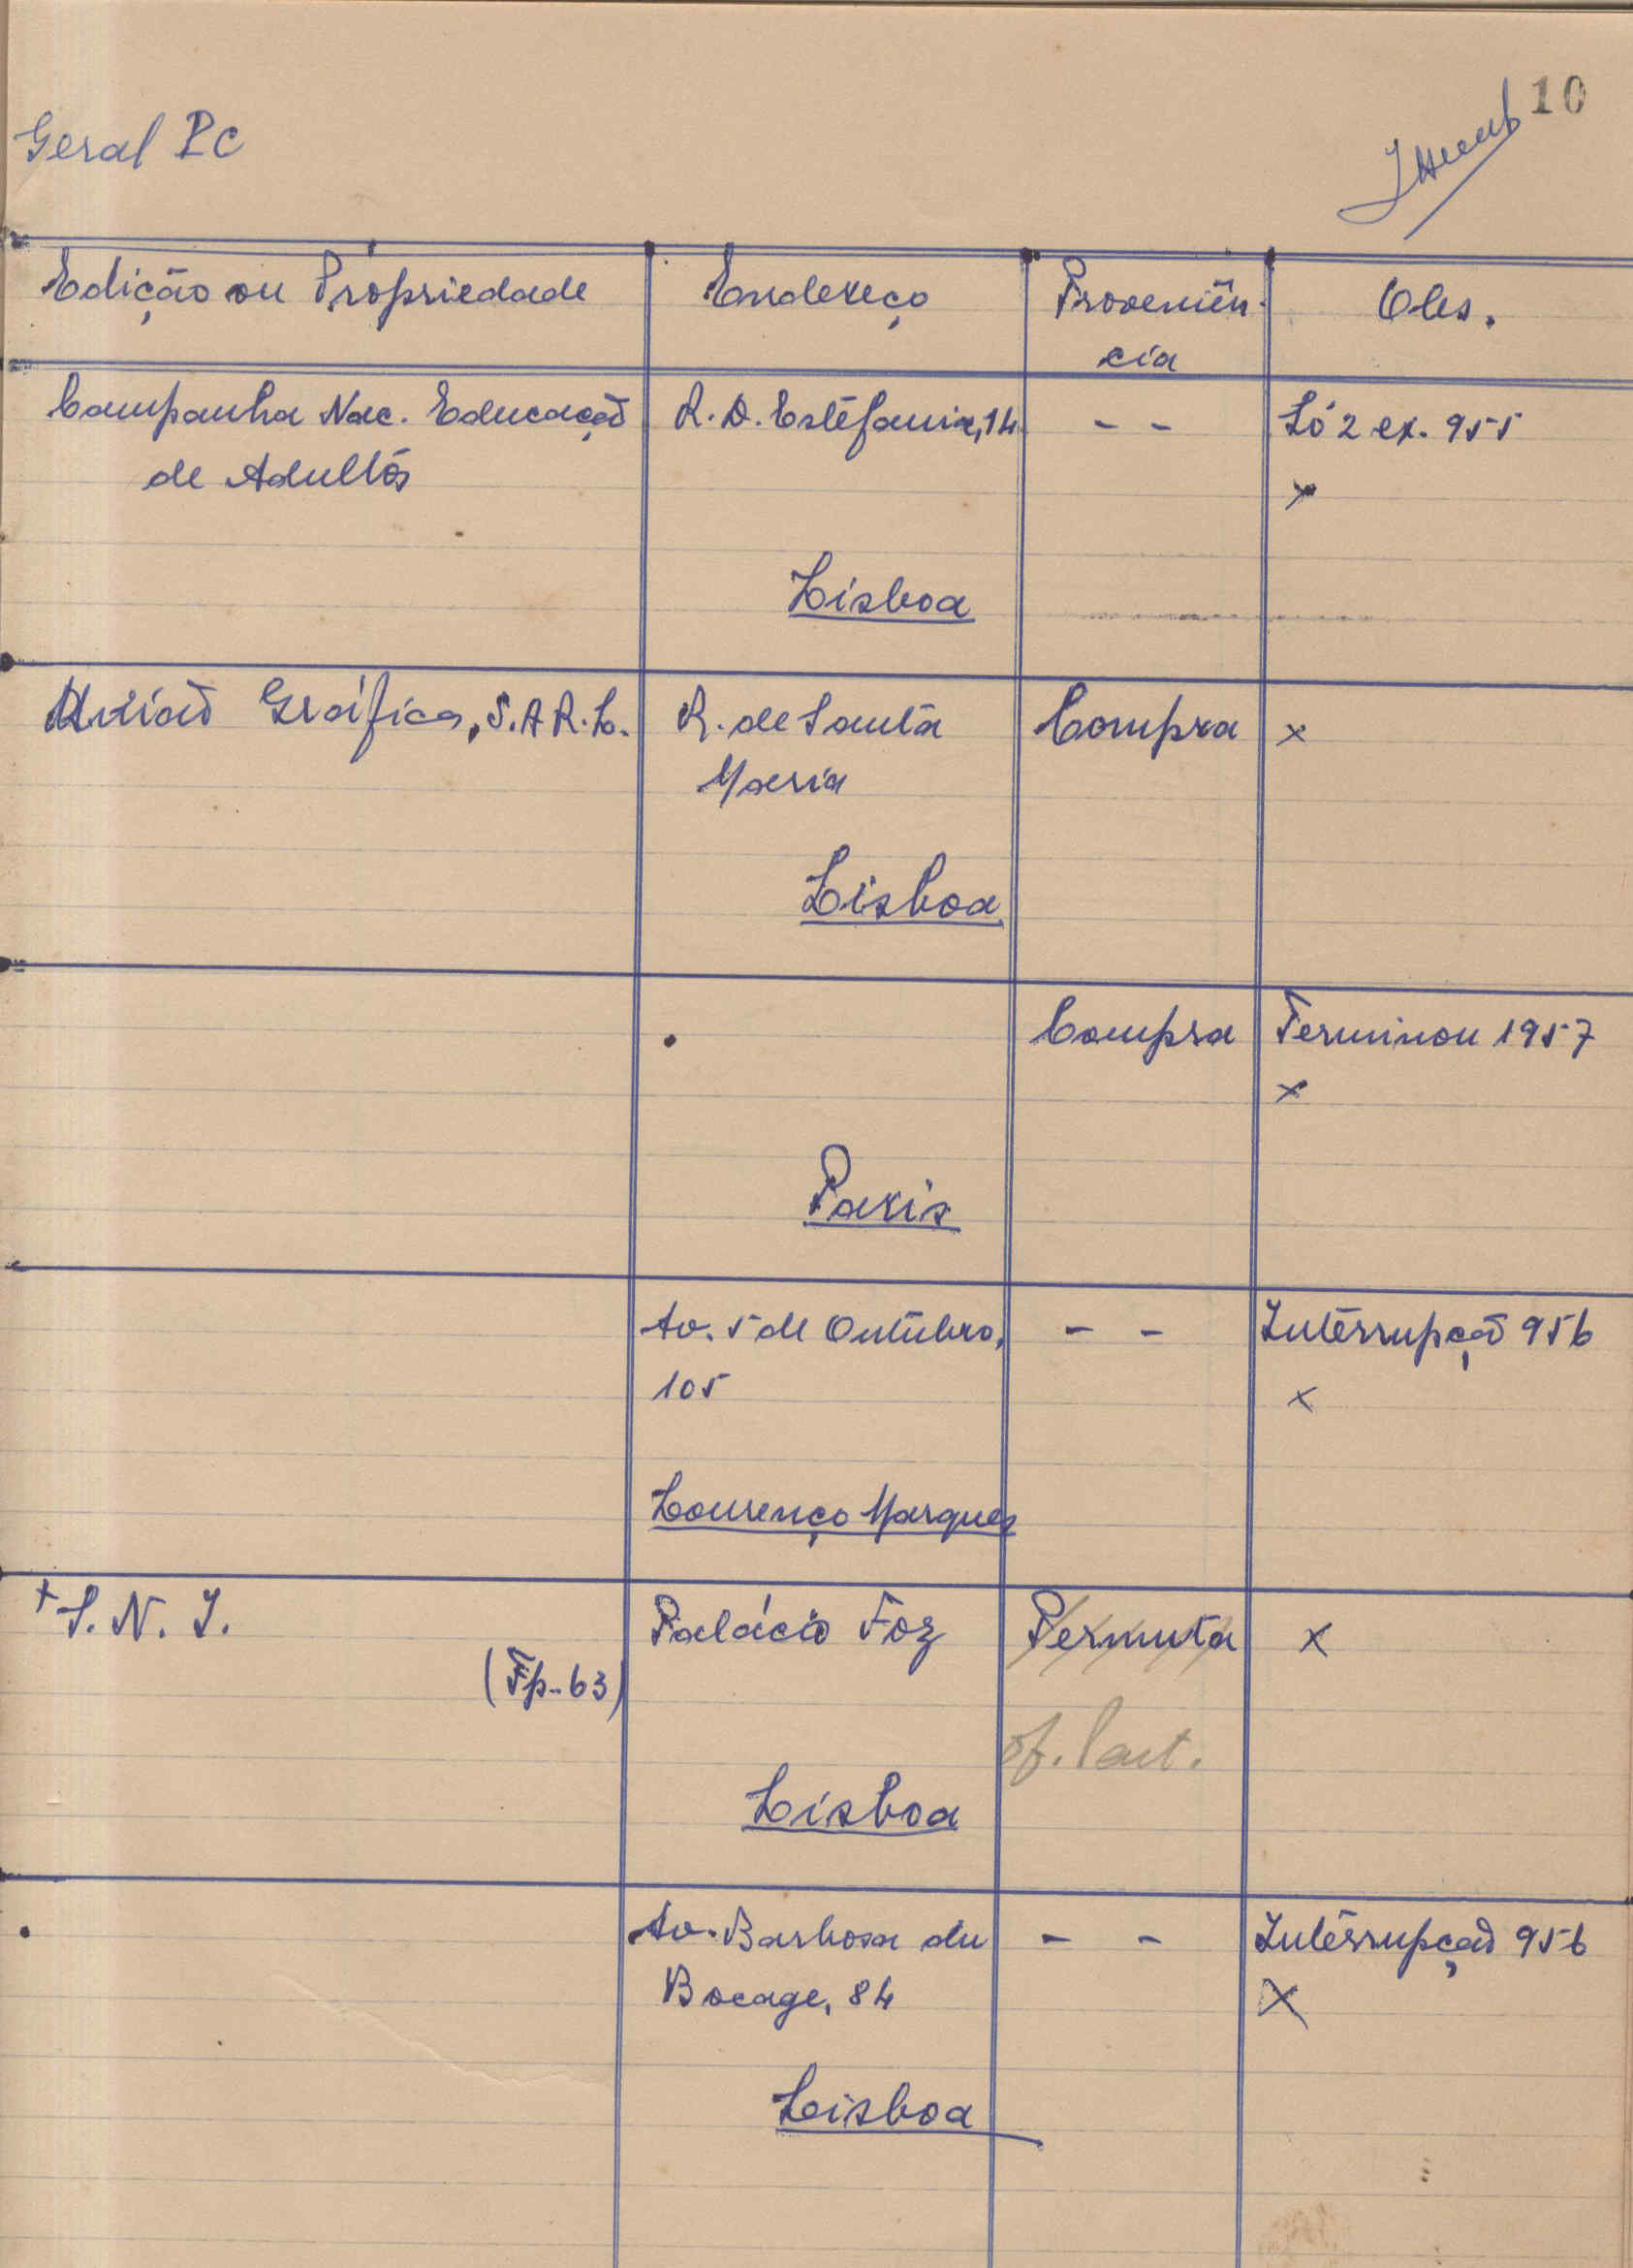 10
Geral
Edição ou Propriedade Endereço Proveniên- Obs.
cia
Campanha Nac. Educação R. D. Estêfania, 14 - - Só 2 ex. 955
de Adultos x
Lisboa
União Gráfica, S.A.R.L. R. de Santa Compra x
Maria
Lisboa
Compra Terminou 1957
x
Paris
Av. 5 de Outubro, - - Interrupção 956
105 x
Lourenço Marques
+ S. N. I. Palácio Foz Permuta x
(Fp-63)
Lisboa
Av. Barbosa du - - Interrupção 956
Bocage, 84 x
Lisboa